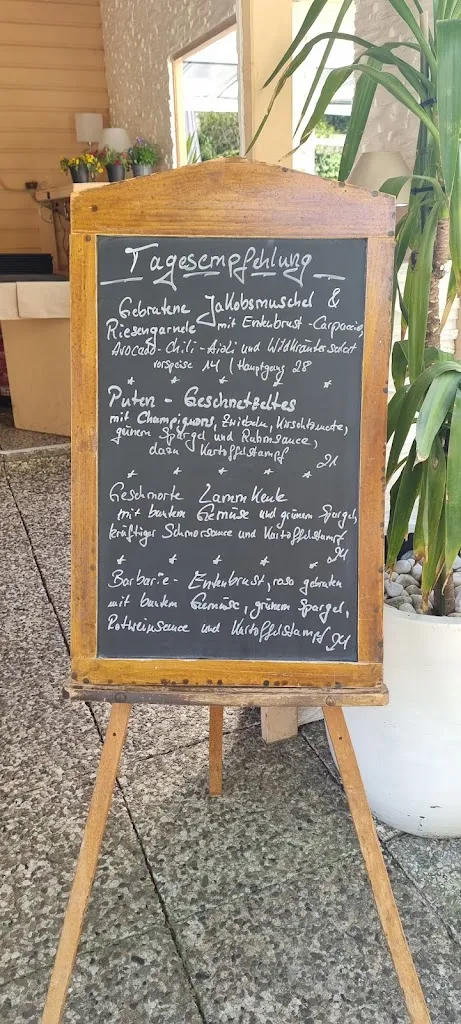 Tagesempfehlung
Gebratene Jakobsmuschel &
Riesengarnele mit Entenbrust-Carpaccio,
Avocado-Chili-Aioli und Wildkräutersalat
Vorspeise 14 / Hauptgang 28
Puten - Geschnetzeltes
mit Champignons, Zwiebeln, Kirschtomate,
grünem Spargel und Rahmsauce,
dazu Kartoffelstampf 21
Geschmorte Lamm Keule
mit buntem Gemüse und grünem Spargel,
kräftiger Schmorsauce und Kartoffelstampf
24
Barbarie - Entenbrust, rosa gebraten
mit buntem Gemüse, grünem Spargel,
Rotweinsauce und Kartoffelstampf 24